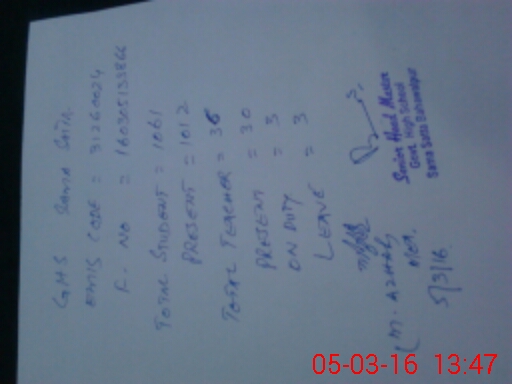 GHS SAMA SATTA
EMIS CODE = 31260024
F. NO = 160305133866
TOTAL STUDENT = 1061
PRESENT = 1012
TOTAL TEACHER = 36
PRESENT = 30
ON DUTY = 3
LEAVE = 3
Senior Head Master
Govt. High School
Sama Satta Bahawalpur
(M. AZHAR)
5/3/16
05-03-16 13:47